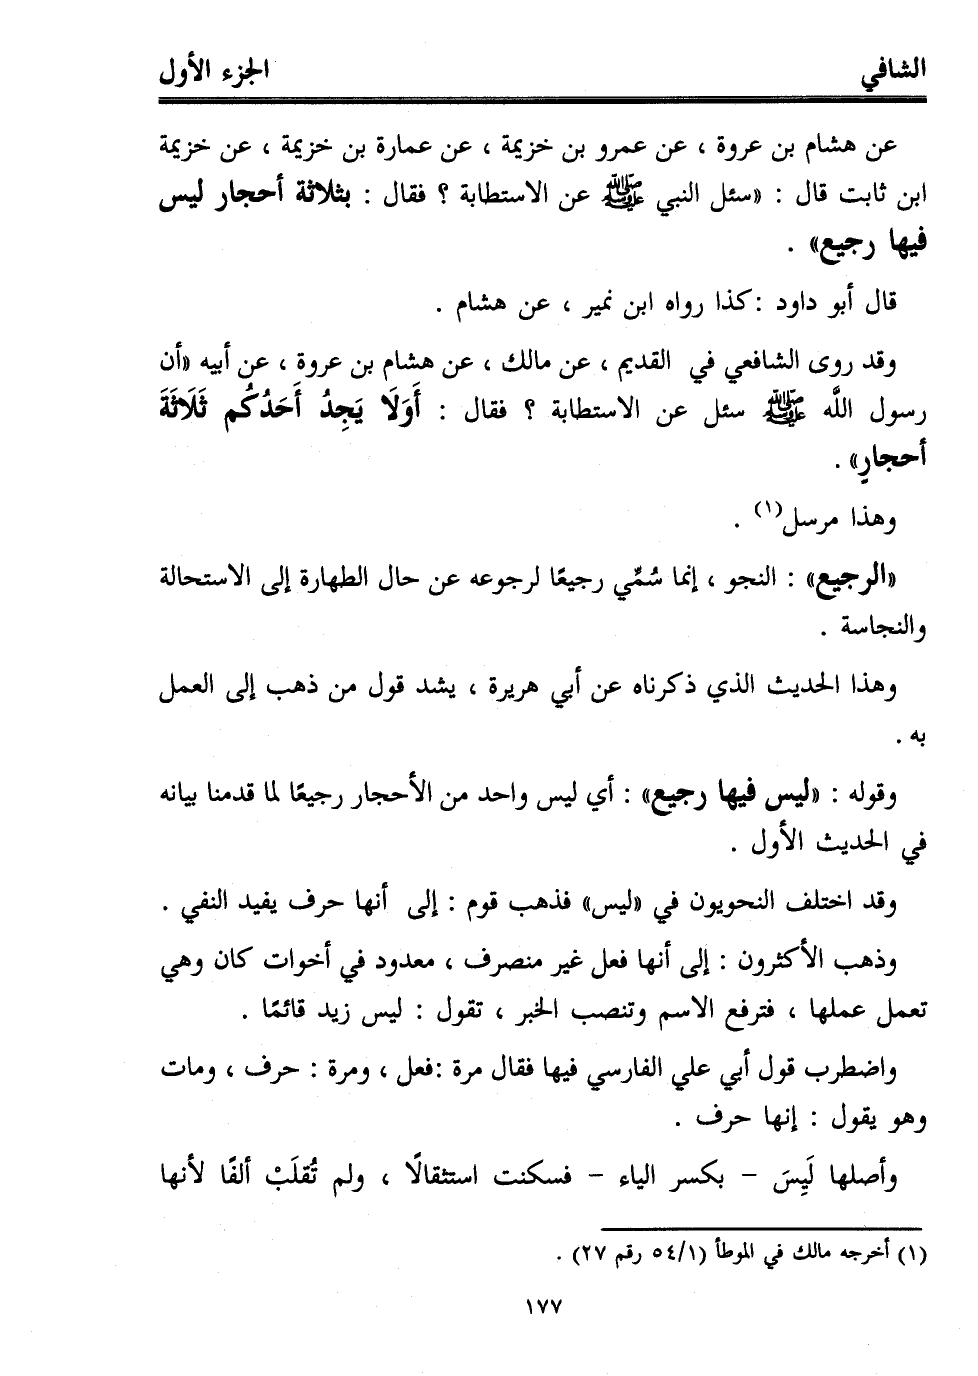 الشافي الجزء الأول
عن هشام بن عروة ، عن عمرو بن خزيمة ، عن عمارة بن خزيمة ، عن خزيمة
ابن ثابت قال : «سئل النبي ﷺ عن الاستطابة ؟ فقال : بثلاثة أحجار ليس
فيها رجيع» .
قال أبو داود :كذا رواه ابن نمير ، عن هشام .
وقد روى الشافعي في القديم ، عن مالك ، عن هشام بن عروة ، عن أبيه «أن
رسول اللَّه ﷺ سئل عن الاستطابة ؟ فقال : أَوَلَا يَجِدُ أَحَدُكُم ثَلَاثَةَ
أحجارٍ» .
وهذا مرسل(١) .
«الرجيع» : النجو ، إنما سُمِّي رجيعًا لرجوعه عن حال الطهارة إلى الاستحالة
والنجاسة .
وهذا الحديث الذي ذكرناه عن أبي هريرة ، يشد قول من ذهب إلى العمل
به .
وقوله : «ليس فيها رجيع» : أي ليس واحد من الأحجار رجيعًا لما قدمنا بيانه
في الحديث الأول .
وقد اختلف النحويون في «ليس» فذهب قوم : إلى أنها حرف يفيد النفي .
وذهب الأكثرون : إلى أنها فعل غير منصرف ، معدود في أخوات كان وهي
تعمل عملها ، فترفع الاسم وتنصب الخبر ، تقول : ليس زيد قائمًا .
واضطرب قول أبي علي الفارسي فيها فقال مرة :فعل ، ومرة : حرف ، ومات
وهو يقول : إنها حرف .
وأصلها لَيِسَ – بكسر الياء – فسكنت استثقالًا ، ولم تُقلَبْ ألفًا لأنها
(١) أخرجه مالك في الموطأ (٥٤/١ رقم ٢٧) .
١٧٧